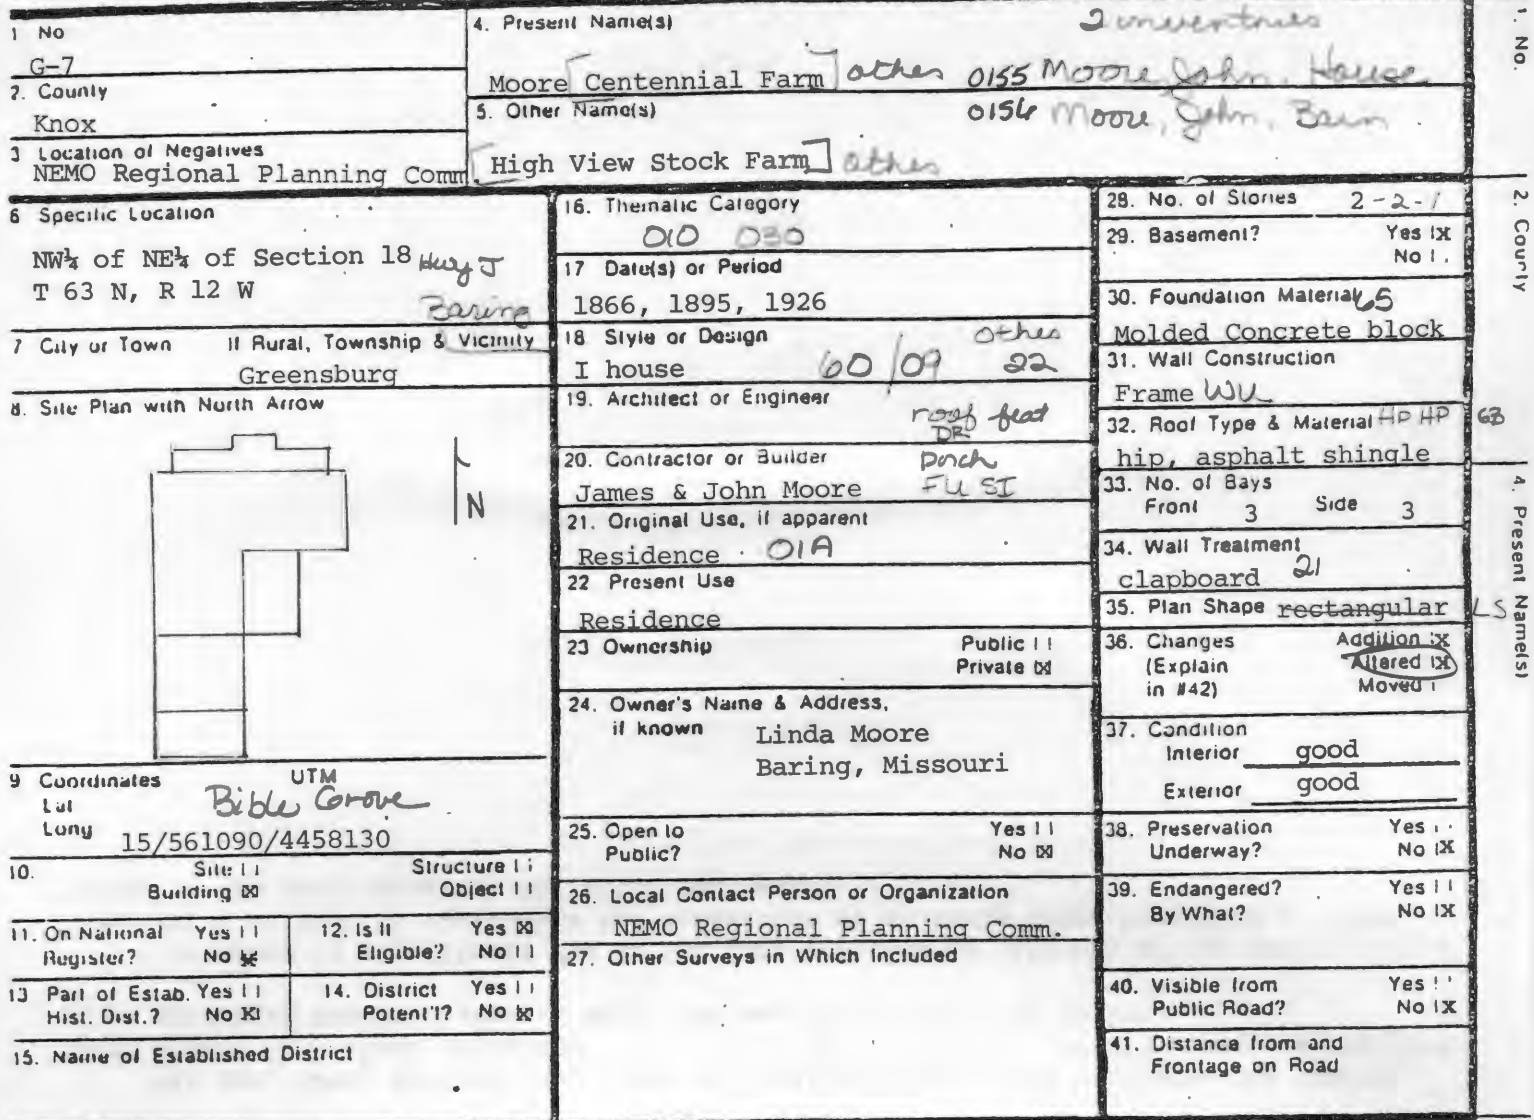 1 No
G-7
2. County
Knox
3 Location of Negatives
NEMO Regional Planning Comm
4. Present Name(s)
2 inventories
Moore [Centennial Farm] other 0155 Moore, John, House
5. Other Name(s)
0156 Moore, John, Barn
[High View Stock Farm] other
6 Specific Location
NW¼ of NE¼ of Section 18 Hwy J
T 63 N, R 12 W
Baring
7 City or Town If Rural, Township & Vicinity
Greensburg
8. Site Plan with North Arrow
N
9 Coordinates UTM
Lat
Bible Grove
Long
15/561090/4458130
10. Site Structure
Building X Object
11. On National Yes
Register? No X
12. Is It Yes X
Eligible? No
13 Part of Estab. Yes
Hist. Dist.? No X
14. District Yes
Potent'l? No X
15. Name of Established District
16. Thematic Category
010 030
17 Date(s) or Period
1866, 1895, 1926
18 Style or Design other
I house 60/09 22
19. Architect or Engineer
roof feat
DR
20. Contractor or Builder porch
James & John Moore FU SI
21. Original Use, if apparent
Residence 01A
22 Present Use
Residence
23 Ownership Public
Private X
24. Owner's Name & Address,
if known Linda Moore
Baring, Missouri
25. Open to Yes
Public? No X
26. Local Contact Person or Organization
NEMO Regional Planning Comm.
27. Other Surveys in Which Included
28. No. of Stories 2-2-1
29. Basement? Yes X
No
30. Foundation Material 65
Molded Concrete block
31. Wall Construction
Frame WU
32. Roof Type & Material HP HP 63
hip, asphalt shingle
33. No. of Bays
Front 3 Side 3
34. Wall Treatment
clapboard 21
35. Plan Shape rectangular LS
36. Changes Addition X
(Explain Altered X
in #42) Moved
37. Condition
Interior good
Exterior good
38. Preservation Yes
Underway? No X
39. Endangered? Yes
By What? No X
40. Visible from Yes
Public Road? No X
41. Distance from and
Frontage on Road
1. No.
2. County
4. Present Name(s)